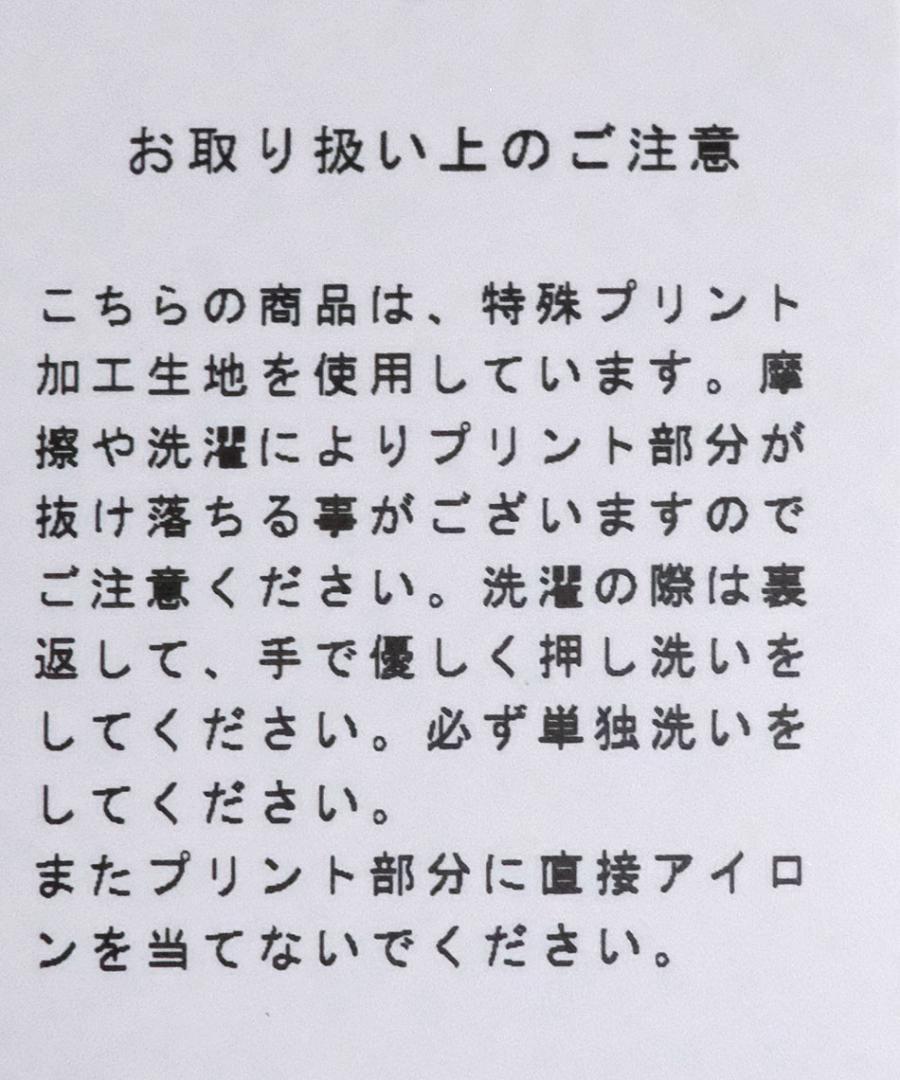 お取り扱い上のご注意
こちらの商品は、特殊プリント
加工生地を使用しています。摩
擦や洗濯によりプリント部分が
抜け落ちる事がございますので
ご注意ください。洗濯の際は裏
返して、手で優しく押し洗いを
してください。必ず単独洗いを
してください。
またプリント部分に直接アイロ
ンを当てないでください。